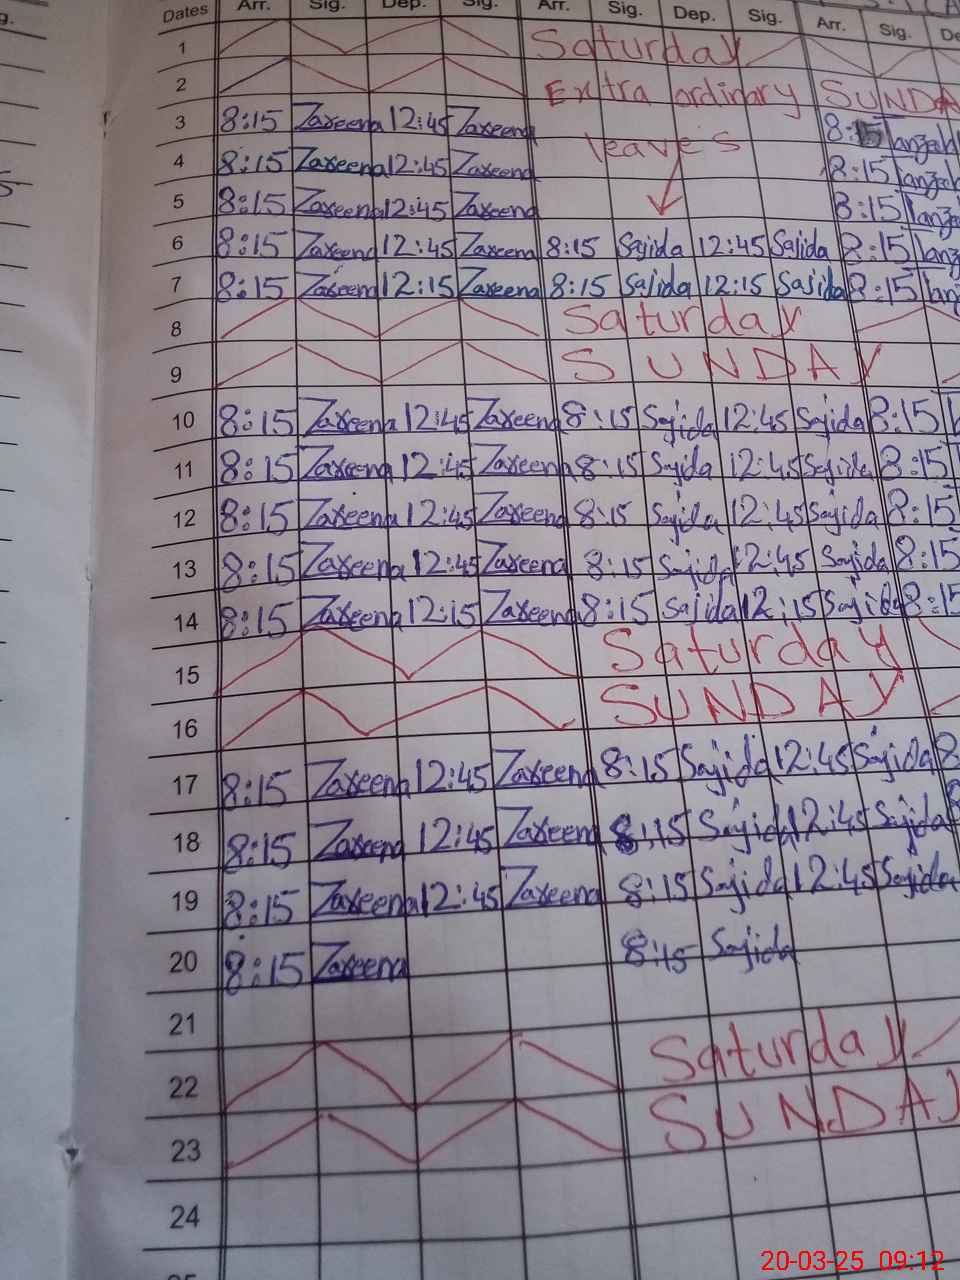 g.
Dates Arr. Sig. Dep. Sig. Arr. Sig. Dep. Sig. Arr. Sig. De
1 Saturday
2 Extra ordinary SUNDA
3 8:15 Zareena 12:45 Zareena leaves 8:15
4 8:15 Zareena 12:45 Zareena 8:15
5 8:15 Zareena 12:45 Zareena 8:15
6 8:15 Zareena 12:45 Zareena 8:15 Sajida 12:45 Sajida 8:15
7 8:15 Zareena 12:15 Zareena 8:15 Sajida 12:15 Sajida 8:15
8 Saturday
9 SUNDAY
10 8:15 Zareena 12:45 Zareena 8:15 Sajida 12:45 Sajida 8:15
11 8:15 Zareena 12:45 Zareena 8:15 Sajida 12:45 Sajida 8:15
12 8:15 Zareena 12:45 Zareena 8:15 Sajida 12:45 Sajida 8:15
13 8:15 Zareena 12:45 Zareena 8:15 Sajida 12:45 Sajida 8:15
14 8:15 Zareena 12:15 Zareena 8:15 Sajida 12:15 Sajida 8:15
15 Saturday
16 SUNDAY
17 8:15 Zareena 12:45 Zareena 8:15 Sajida 12:45 Sajida 8
18 8:15 Zareena 12:45 Zareena 8:15 Sajida 12:45 Sajida 8
19 8:15 Zareena 12:45 Zareena 8:15 Sajida 12:45 Sajida
20 8:15 Zareena 8:15 Sajida
21
22 Saturday
23 SUNDAY
24
20-03-25 09:12